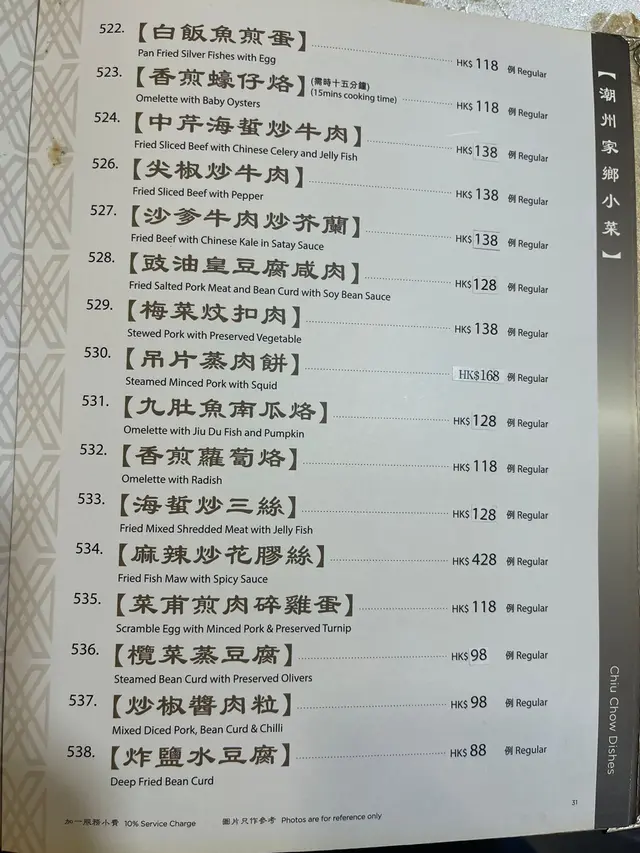 522. 【白飯魚煎蛋】 HK$ 118 例 Regular
Pan Fried Silver Fishes with Egg
523. 【香煎蠔仔烙】 (需時十五分鐘) (15mins cooking time) HK$ 118 例 Regular
Omelette with Baby Oysters
524. 【中芹海蜇炒牛肉】 HK$ 138 例 Regular
Fried Sliced Beef with Chinese Celery and Jelly Fish
526. 【尖椒炒牛肉】 HK$ 138 例 Regular
Fried Sliced Beef with Pepper
527. 【沙爹牛肉炒芥蘭】 HK$ 138 例 Regular
Fried Beef with Chinese Kale in Satay Sauce
528. 【豉油皇豆腐咸肉】 HK$ 128 例 Regular
Fried Salted Pork Meat and Bean Curd with Soy Bean Sauce
529. 【梅菜炆扣肉】 HK$ 138 例 Regular
Stewed Pork with Preserved Vegetable
530. 【吊片蒸肉餅】 HK$168 例 Regular
Steamed Minced Pork with Squid
531. 【九肚魚南瓜烙】 HK$ 128 例 Regular
Omelette with Jiu Du Fish and Pumpkin
532. 【香煎蘿蔔烙】 HK$ 118 例 Regular
Omelette with Radish
533. 【海蜇炒三絲】 HK$ 128 例 Regular
Fried Mixed Shredded Meat with Jelly Fish
534. 【麻辣炒花膠絲】 HK$ 428 例 Regular
Fried Fish Maw with Spicy Sauce
535. 【菜甫煎肉碎雞蛋】 HK$ 118 例 Regular
Scramble Egg with Minced Pork & Preserved Turnip
536. 【欖菜蒸豆腐】 HK$ 98 例 Regular
Steamed Bean Curd with Preserved Olivers
537. 【炒椒醬肉粒】 HK$ 98 例 Regular
Mixed Diced Pork, Bean Curd & Chilli
538. 【炸鹽水豆腐】 HK$ 88 例 Regular
Deep Fried Bean Curd
【潮州家鄉小菜】
Chiu Chow Dishes
31
加一服務小費 10% Service Charge 圖片只作參考 Photos are for reference only